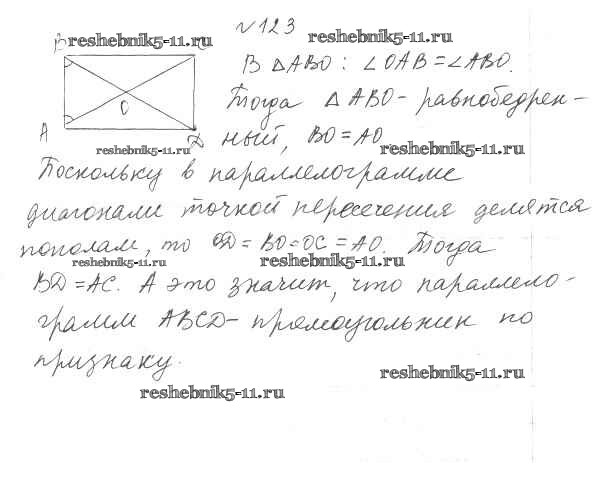 №123
B reshebnik5-11.ru
reshebnik5-11.ru
В △ABO: ∠OAB = ∠ABO.
O
Тогда △ABO - равнобедрен-
A
reshebnik5-11.ru
ный, BO = AO
reshebnik5-11.ru
Поскольку в параллелограмме
диагонали точкой пересечения делятся
пополам, то OD = BO = OC = AO. Тогда
reshebnik5-11.ru
reshebnik5-11.ru
BD = AC. А это значит, что параллело-
грамм ABCD - прямоугольник по
признаку.
reshebnik5-11.ru
reshebnik5-11.ru